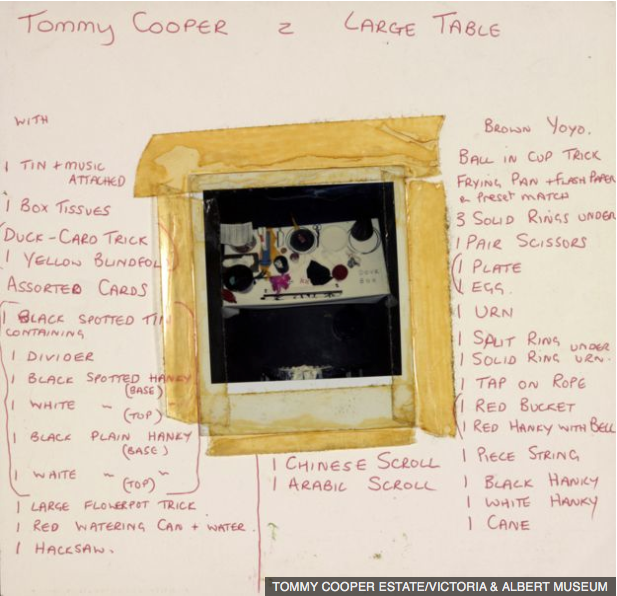 TOMMY COOPER 2 LARGE TABLE
WITH
1 TIN + MUSIC
ATTACHED
1 BOX TISSUES
DUCK-CARD TRICK
1 YELLOW BLINDFOL
ASSORTED CARDS
1 BLACK SPOTTED TIN
CONTAINING
1 DIVIDER
1 BLACK SPOTTED HANKY
(BASE)
1 WHITE " "
(TOP)
1 BLACK PLAIN HANKY
(BASE)
1 WHITE " "
(TOP)
1 LARGE FLOWERPOT TRICK
1 RED WATERING CAN + WATER.
1 HACKSAW.
1 CHINESE SCROLL
1 ARABIC SCROLL
BROWN YOYO.
BALL IN CUP TRICK
FRYING PAN + FLASH PAPER
& PRESET MATCH
3 SOLID RINGS UNDER
1 PAIR SCISSORS
1 PLATE
1 EGG.
1 URN
1 SPLIT RING UNDER
1 SOLID RING URN.
1 TAP ON ROPE
1 RED BUCKET
1 RED HANKY WITH BELL
1 PIECE STRING
1 BLACK HANKY
1 WHITE HANKY
1 CANE
TOMMY COOPER ESTATE/VICTORIA & ALBERT MUSEUM